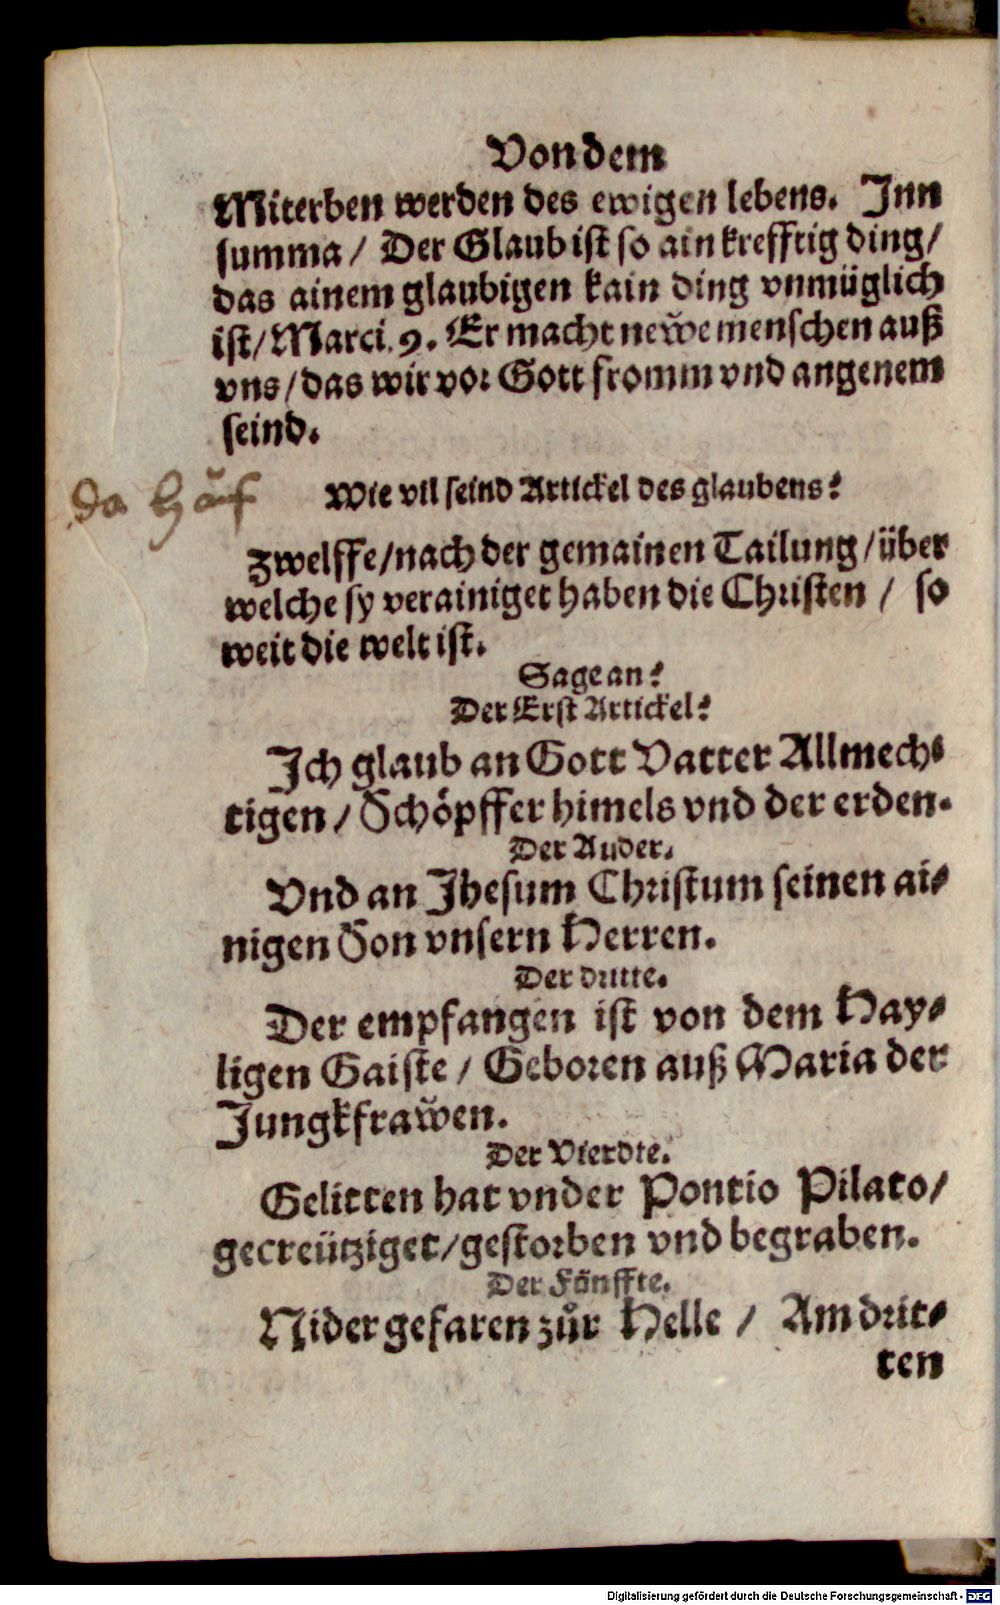 Von dem
Miterben werden des ewigen lebens. Inn
summa / Der Glaub ist so ain krefftig ding /
das ainem glaubigen kain ding vnmüglich
ist / Marci. 9. Er macht newe menschen auß
vns / das wir vor Gott fromm vnd angenem
seind.
Wie vil seind Artickel des glaubens?
Zwelffe / nach der gemainen Tailung / über
welche sy verainiget haben die Christen / so
weit die welt ist.
Sage an?
Der Erst Artickel?
Ich glaub an Gott Vatter Allmech⸗
tigen / Schöpffer himels vnd der erden.
Der Ander.
Vnd an Jhesum Christum seinen ai⸗
nigen Son vnsern Herren.
Der dritte.
Der empfangen ist von dem Hay⸗
ligen Gaiste / Geboren auß Maria der
Jungkfrawen.
Der Vierdte.
Gelitten hat vnder Pontio Pilato /
gecreütziget / gestorben vnd begraben.
Der Fünffte.
Nider gefaren zůr Helle / Am drit⸗
ten
Digitalisierung gefördert durch die Deutsche Forschungsgemeinschaft - DFG